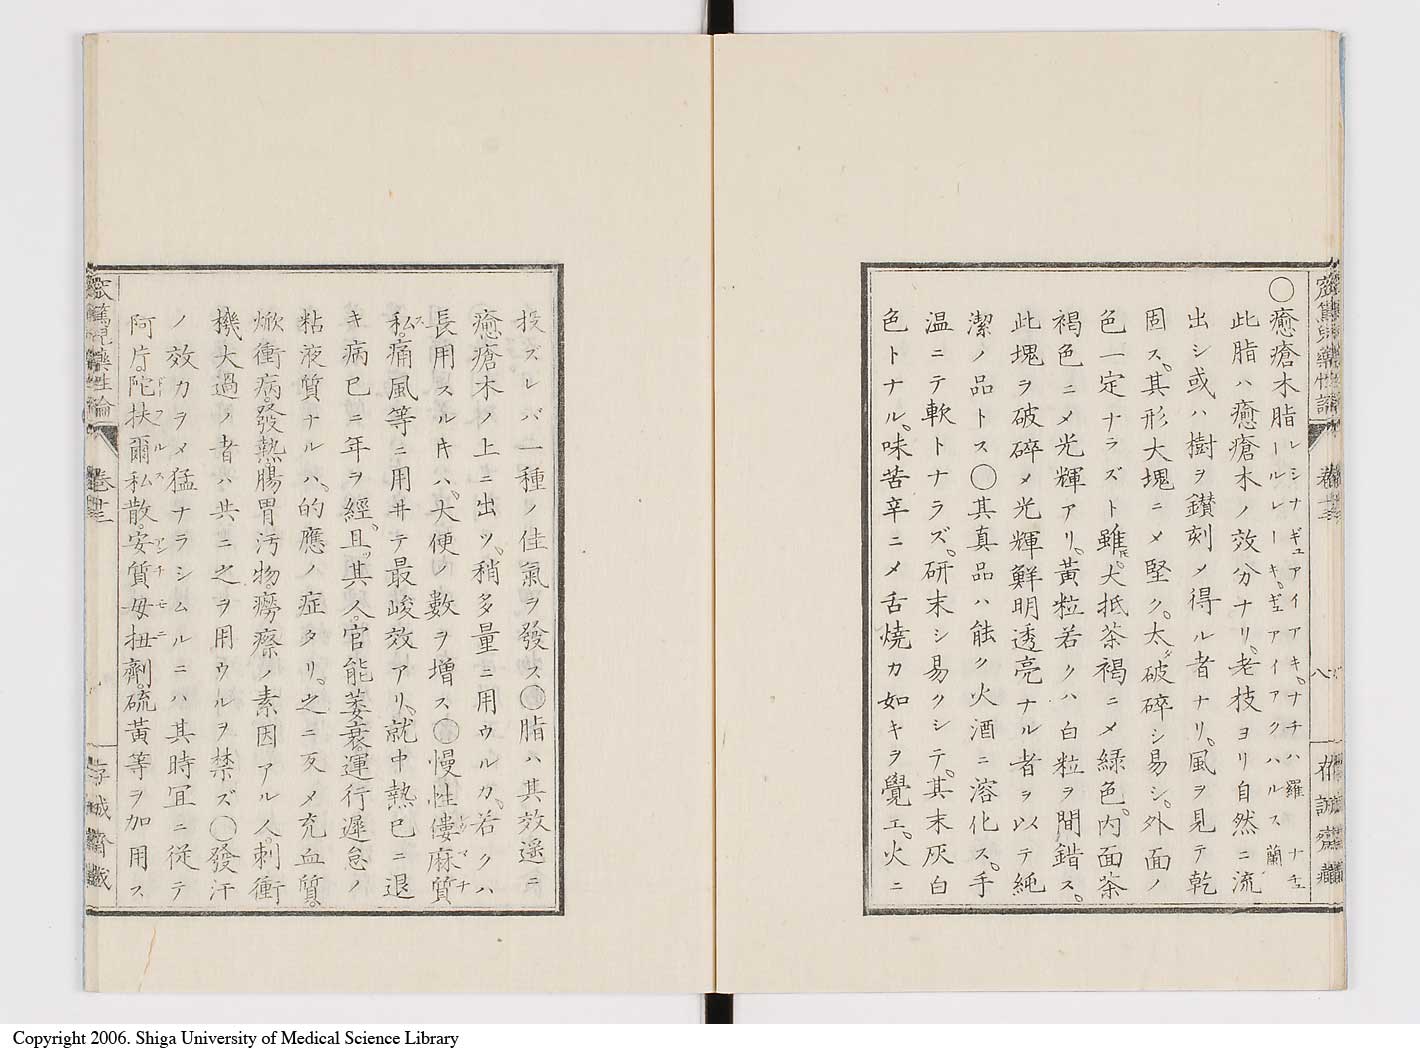 ○癒瘡木脂 レシナギュアイアキ。ナチハ羅 ナチュ
ールレーキ。ギュアイアクハルス 蘭
此脂ハ癒瘡木ノ效分ナリ。老枝ヨリ自然ニ流
出シ或ハ樹ヲ鑚刻メ得ル者ナリ。風ヲ見テ乾
固ス。其形大塊ニメ堅ク。太ダ破碎シ易シ。外面ノ
色一定ナラズト雖𪜈。大抵茶褐ニメ緑色。内面茶
褐色ニメ光輝アリ。黃粒若クハ白粒ヲ間錯ス。
此塊ヲ破碎メ光輝鮮明透亮ナル者ヲ以テ純
潔ノ品トス○其真品ハ能ク火酒ニ溶化ス。手
温ニテ軟トナラズ。研末シ易クシテ。其末灰白
色トナル。味苦辛ニメ舌燒カ如キヲ覺エ。火ニ
卷十三
八
存誠齋藏
投ズレバ一種ノ佳氣ヲ發ス○脂ハ其效遥ニ
癒瘡木ノ上ニ出ツ。稍多量ニ用ウルカ。若クハ
長用スル𪜈ハ。大便ノ數ヲ增ス○慢性僂麻質
私。痛風等ニ用井テ最峻效アリ。就中熱已ニ退
キ病已ニ年ヲ經。且。其人。官能萎衰。運行遲怠ノ
粘液質ナルハ。的應ノ症タリ。之ニ反メ充血質。
焮衝病。發熱。腸胃汚物。癆瘵ノ素因アル人。刺衝
機大過ノ者ハ共ニ之ヲ用ウルヲ禁ズ○發汗
ノ效カヲメ猛ナラシムルニハ其時宜ニ從テ
阿片。陀扶爾私散。安質母扭劑。硫黃等ヲ加用ス
窊篤兒藥性論
卷十三
存誠齋藏
Copyright 2006. Shiga University of Medical Science Library